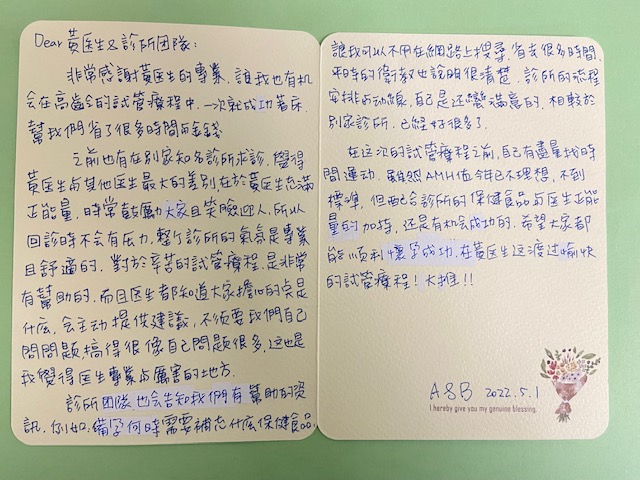 Dear 黃医生&診所团隊:
非常感謝黃医生的專業,讓我也有机
会在高齡的試管療程中,一次就成功著床,
幫我們省了很多時間与金錢
之前也有在別家知名診所求診,覺得
黃医生与其他医生最大的差別在於黃医生充滿
正能量,時常鼓勵大家且笑臉迎人,所以
回診時不会有压力,整个診所的氣氛是專業
且舒適的,對於辛苦的試管療程,是非常
有幫助的,而且医生都知道大家擔心的点是
什広,会主动提供建議,不須要我們自己
問問題搞得很像自己問題很多,这也是
我覺得医生專業与厲害的地方.
診所团隊也会告知我們有幫助的資
訊,例如,備孕何時需要補充什広保健食品,
讓我可以不用在網路上搜尋省去很多時間,
平時的衛教也說明很清楚,診所的流程
安排与动線,自己是还蠻滿意的,相較於
別家診所,已經好很多了.
在这次的試管療程之前,自己有盡量找時
間運动,雖然AMH值今年已不理想,不到
標準,但配合診所的保健食品与医生正能
量的加持,还是有机会成功的,希望大家都
能順利懷孕成功,在黃医生这渡过愉快
的試管療程!大推!!
A&B 2022.5.1
I hereby give you my genuine blessing.